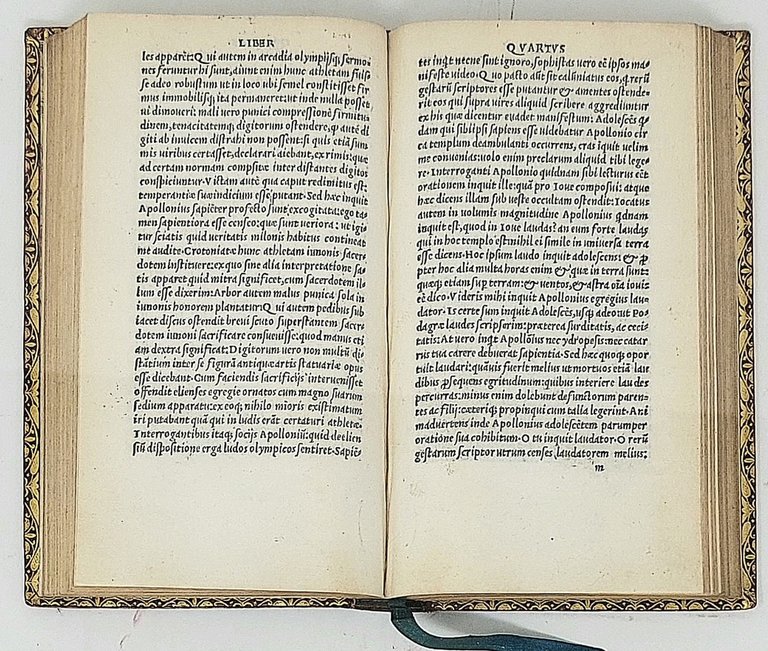 LIBER
les apparēt: Qui autem in arcadia olympijsq; sermo-
nes feruntur hi sunt, aiunt enim hunc athletam fuis-
se adeo robustum ut in loco ubi semel constitisset fir
mus immobilisq; ita permaneret: ut inde nulla posset
ui dimoueri: mali uero punici compressionē firmitu-
dinem, tenacitatemq; digitorum ostendere, ꝙ autē di
giti ab inuicem distrahi non possent: si quis etiā sum
mis uiribus certasset, declarari aiebant, ex rimis: quæ
ad certam normam compsitæ inter distantes digitos
conspiciuntur. Victam autē qua caput redimitus est;
temperantiæ suæ indicium esse putant. Sed hæc inquit
Apollonius sapiēter profecto sunt excogitata: ego ta-
men sapientiora esse censeo: quæ sunt ueriora: ut igi-
tur sciatis quid ueritatis milonis habitus contineat
me audite. Crotoniatæ hunc athletam iunonis sacer-
dotem instituere: ex quo sine alia interpretatione sa-
tis apparet quid mitra significet, cum sacerdotem il-
lum esse dixerim: Arbor autem malus punica sola in
iunonis honorem plantatur: Qui autem pedibus sub
iacet discus ostendit breui scuto superstantem sacer-
dotem iunoni sacrificare consueuisse: quod manus eti
am dextra significat: Digitorum uero non multū di-
stātium inter se figurā antiquæ artis statuariæ opus
esse dicebant. Cum faciendis sacrificijs interuenisset
offendit elienses egregie ornatos cum magno suarum
sedium apparatu: ex eoq; nihilo mioris existimatum
iri putabant quā qui in ludis erāt certaturi athletæ.
Interrogantibus itaq; socijs Apollonii: quid de elien-
siū dispositione erga ludos olympicos sentiret. Sapiē-
QVARTVS
tes inqt necne sint ignoro, sophistas uero eē ipsos ma-
nifeste uideo. Quo pacto aūt sit calliniatus eos, q rerū
gestarū scriptores esse putantur & amentes ostende-
rit eos qui supra uires aliquid scribere aggrediuntur
ex his quæ dicentur euadet manifestum: Adolescēs q-
dam qui sibi ipsi sapiens esse uidebatur Apollonio cir
ca templum deambulanti occurrens, cras iquit uelim
me conuenias: uolo enim preclarum aliquid tibi lege-
re. Interroganti Apollonio quidnam sibi lecturus eēt
orationem inquit ille: quā pro Ioue composui: atque
hæc dicens illam sub ueste occultam ostendit: Iocatus
autem in uolumis magnitudine Apollonius qdnam
inquit est, quod in Ioue laudas? an eum forte laudas
qui in hoc templo est nihil ei simile in uniuersa terra
esse dicens. Hoc ipsum laudo inquit adolescens & ꝓ
pter hoc alia multa horas enim & quæ in terra sunt:
quæq; etiam sup terram: & uentos, & astra oīa iouis
eē dico. Videris mihi inquit Apollonius egregius lau-
dator. Is certe sum inquit Adolescēs, usq; adeo ut Po-
dagræ laudes scripserim: præterea surditatis, ac ceci-
tatis: At uero inqt Apollonius nec ydropesis: nec catar
rus tua carere debuerat sapientia. Sed hæc quoq; opor
tuit laudari: quāuis fuerit melius ut mortuos etiā lau
dibus ꝓsequens egritudinum: quibus interiere laudes
percurras: minus enim dolebunt defunctorum paren-
tes ac filij: cæteriq; propinqui cum talla legerint. Ani
maduertens inde Apollonius adolescētem parumper
oratione sua cohibitum. O tu inquit laudator. O rerū
gestarum scriptor utrum censes laudatorem melius:
m